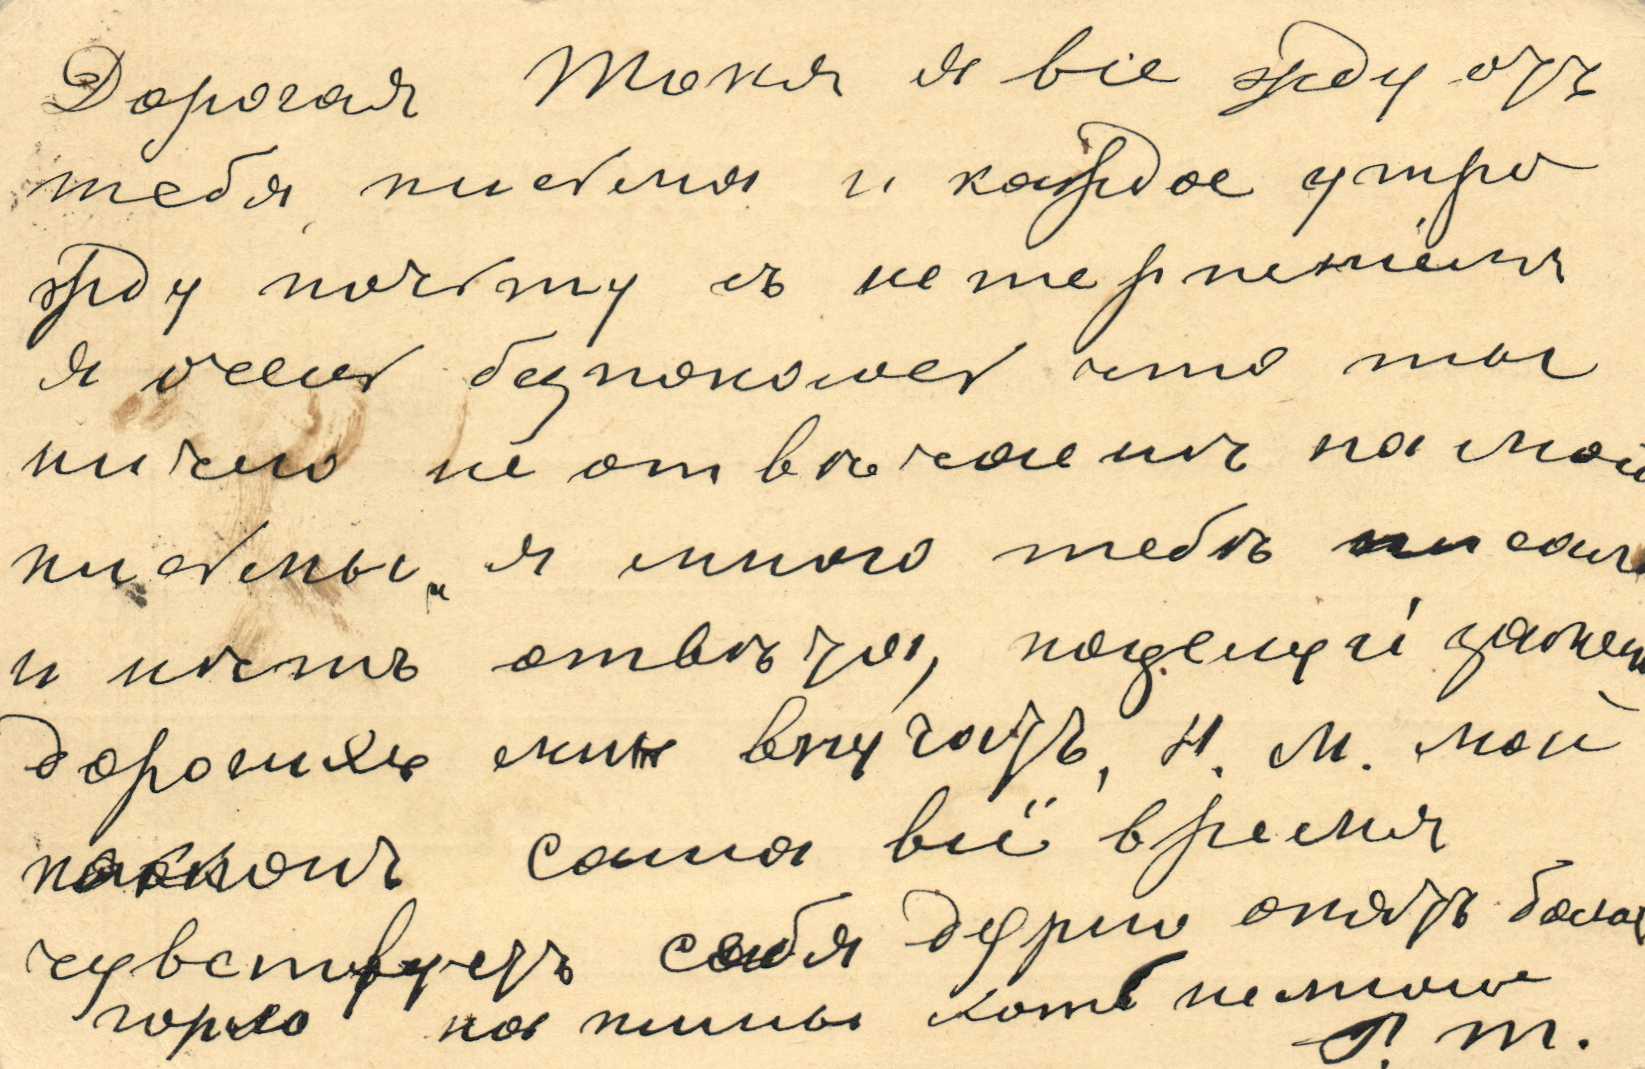 Дорогая Тоня я все жду отъ
тебя письма и каждое утро
жду почьту съ нетерпенiемъ
я очень безпокоюсь что ты
ничего не отвѣчаешъ на мои
письмы, я много тебѣ писала
и нѣтъ отвѣта, поцелуй
дорогихъ мнѣ внучатъ, Н. М. мой
поклонъ Саша всё время
чувствуетъ себя дурно опять
горло напиши хоть немного
Г. Т.